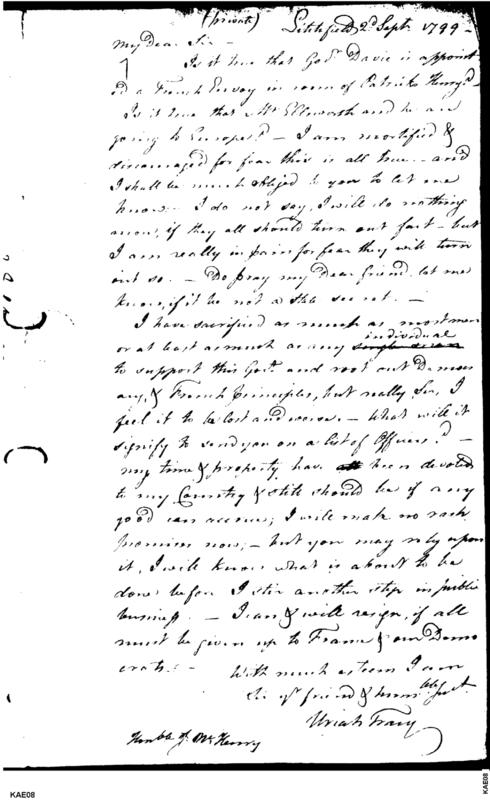 (private) Litchfield 2d Sept. 1799 -
My Dear Sir -
Is it true that Govr. Davie is appoint
ed a French Envoy in room of Patrick Henry? -
Is it true that Mr. Ellsworth and he are
going to Europe? - I am mortified &
discouraged for fear this is all true - and
I shall be much obliged to you to let me
know - I do not say, I will do nothing
more, if they all should turn out fact - but
I am really in pain for fear they will turn
out so. - Do pray my Dear friend, let me
know, if it be not a state secret. -
I have sacrificed as much as most men
or at least as much as any individual
to support this Govt. and root out Democr
acy, & French principles, but really Sir, I
feel it to be lost and worse. - What will it
signify to send you on a list of Officers? -
my time & property have been devoted
to my Country & still should be if any
good can accrue; I will make no rash
promises now; - but you may rely upon
it, I will know what is about to be
done before I stir another step in public
business. - I can & will resign, if all
must be given up to France & our Demo
crats. -
With much esteem I am
Sir yr. friend & humble Servt.
Uriah Tracy
Honble Js. McHenry
KAE08
KAE08